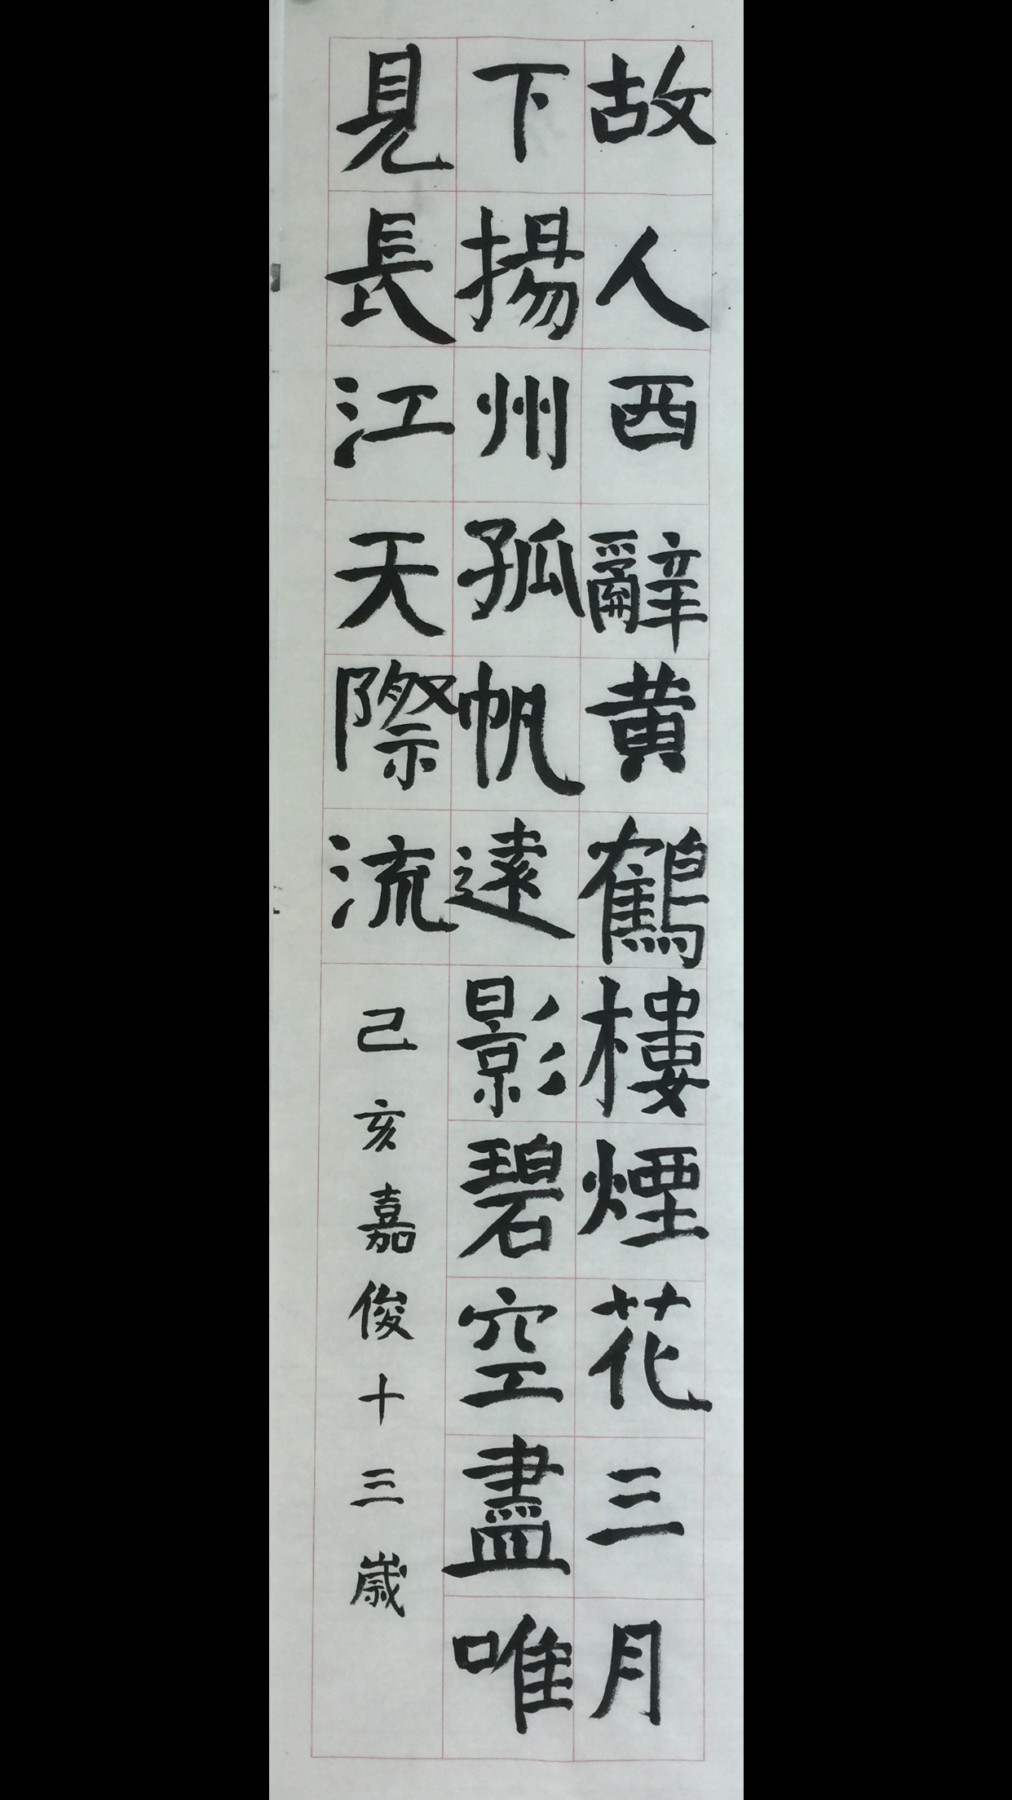 故人西辭黄鶴樓煙花三月
下揚州孤帆遠影碧空盡唯
見長江天際流
己亥嘉俊十三歲